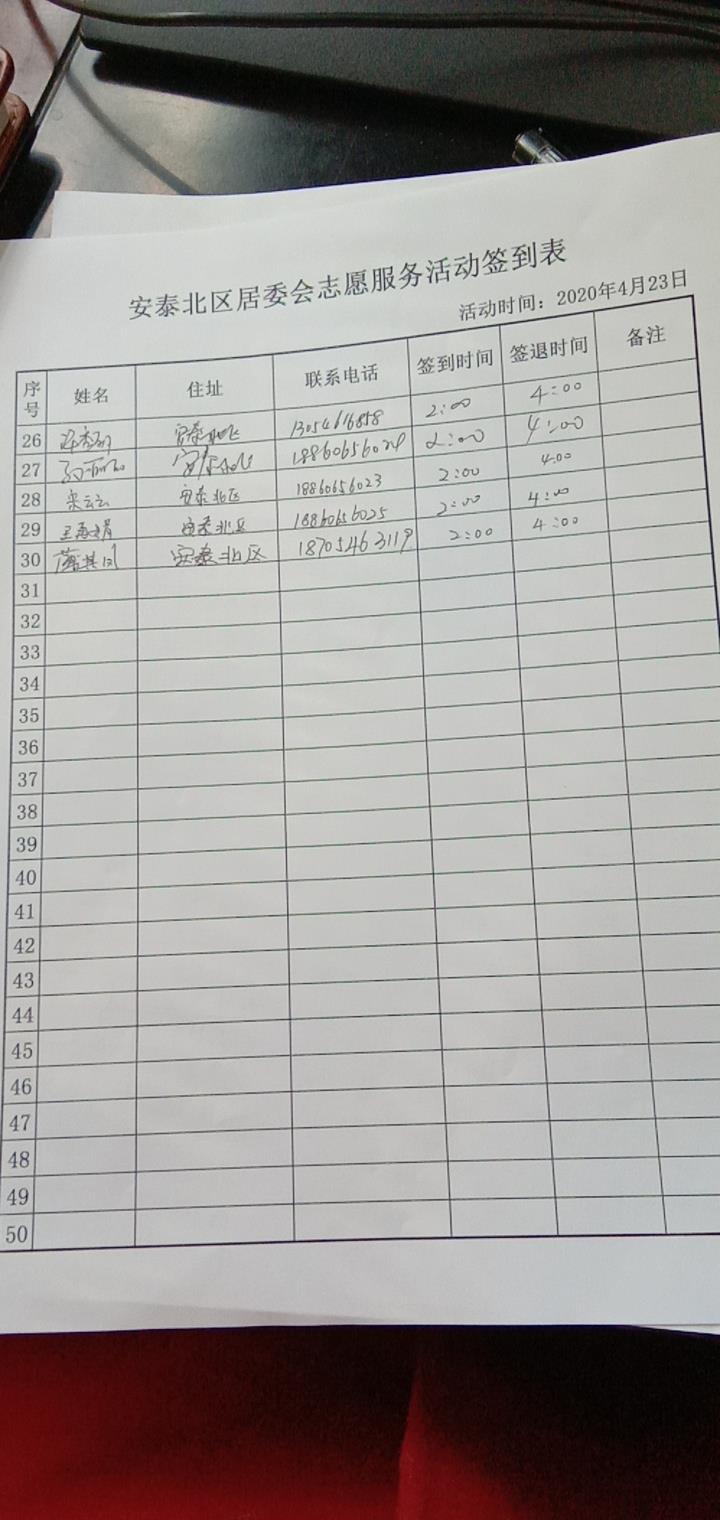 安泰北区居委会志愿服务活动签到表
活动时间：2020年4月23日
序号 姓名 住址 联系电话 签到时间 签退时间 备注
26 安泰北区 13054616858 2:00 4:00
27 安泰北区 18860656024 2:00 4:00
28 宋云云 安泰北区 18860656023 2:00 4:00
29 安泰北区 18860656025 2:00 4:00
30 安泰北区 18705463119 2:00 4:00
31
32
33
34
35
36
37
38
39
40
41
42
43
44
45
46
47
48
49
50